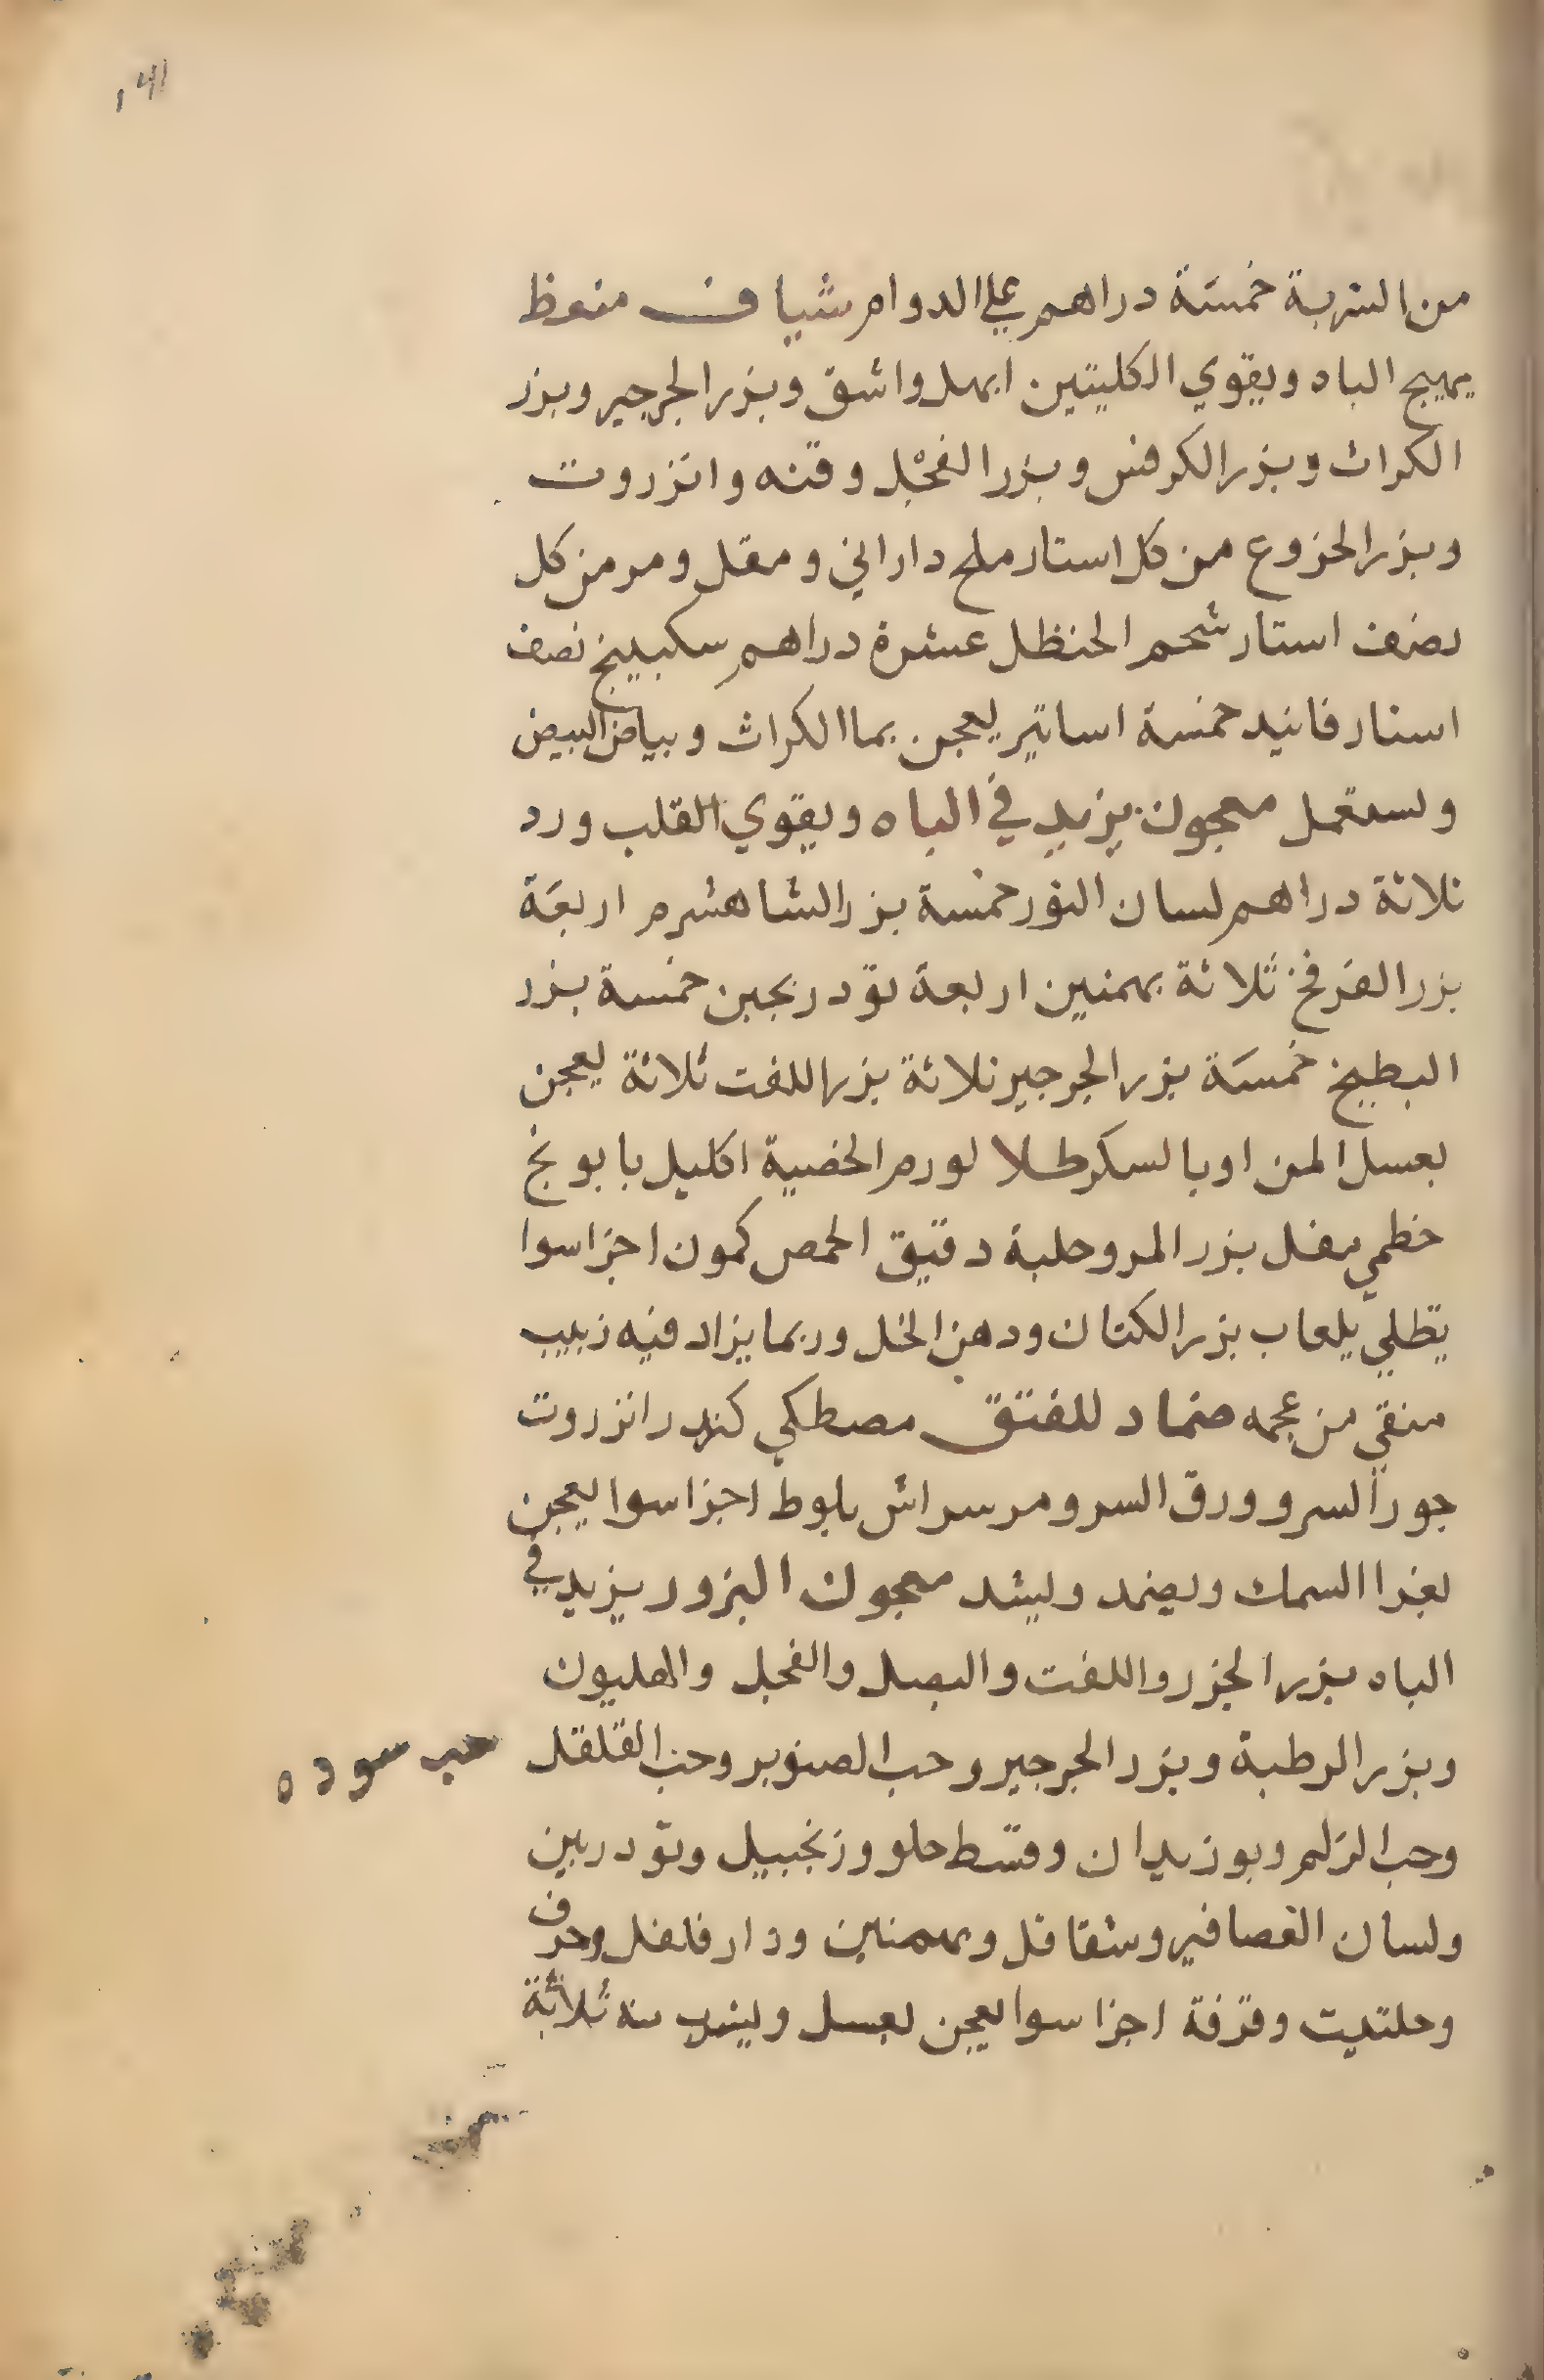 141
من الشربة خمسة دراهم علي الدوام شياف منعظ
يهيج الباه ويقوي الكليتين ابهل واشق وبزر الجرجير وبزر
الكراث وبزر الكرفس وبزر الفجل وقنه وانزروت
وبزر الخروع من كل استار ملح داراني ومقل ومر من كل
نصف استار شحم الحنظل عشرة دراهم سكبينج نصف
استار فانيد خمسة اساتير يعجن بما الكراث وبياض البيض
ويستعمل معجون يزيد في الباه ويقوي القلب ورد
ثلاثة دراهم لسان الثور خمسة بزر الشاهشرم اربعة
بزر الفرفخ ثلاثة بهمنين اربعة تودريجين خمسة بزر
البطيخ خمسة بزر الجرجير ثلاثة بزر اللفت ثلاثة يعجن
بعسل المن او بالسكر طلا لورم الخصية اكليل بابونج
خطمي مقل بزر المرو حلبة دقيق الحمص كمون اجزا سوا
يطلي بلعاب بزر الكتان ودهن الخل وربما يزاد فيه زبيب
منقي من عجمه ضماد للفتق مصطكي كندر انزروت
جوز السرو وورق السرو مر سراش بلوط اجزا سوا يعجن
بغرا السمك ويضمد ويشد معجون البزور يزيد في
الباه بزر الجزر واللفت والبصل والفجل والهليون
وبزر الرطبة وبزر الجرجير وحب الصنوبر وحب القلقل
حب سوده
وحب الزلم وبوزيدان وقسط حلو وزنجبيل وتودريين
ولسان العصافير وشقاقل وبهمنين ودار فلفل وحرف
وحلتيت وقرفة اجزا سوا يعجن بعسل ويشرب منه ثلاثة